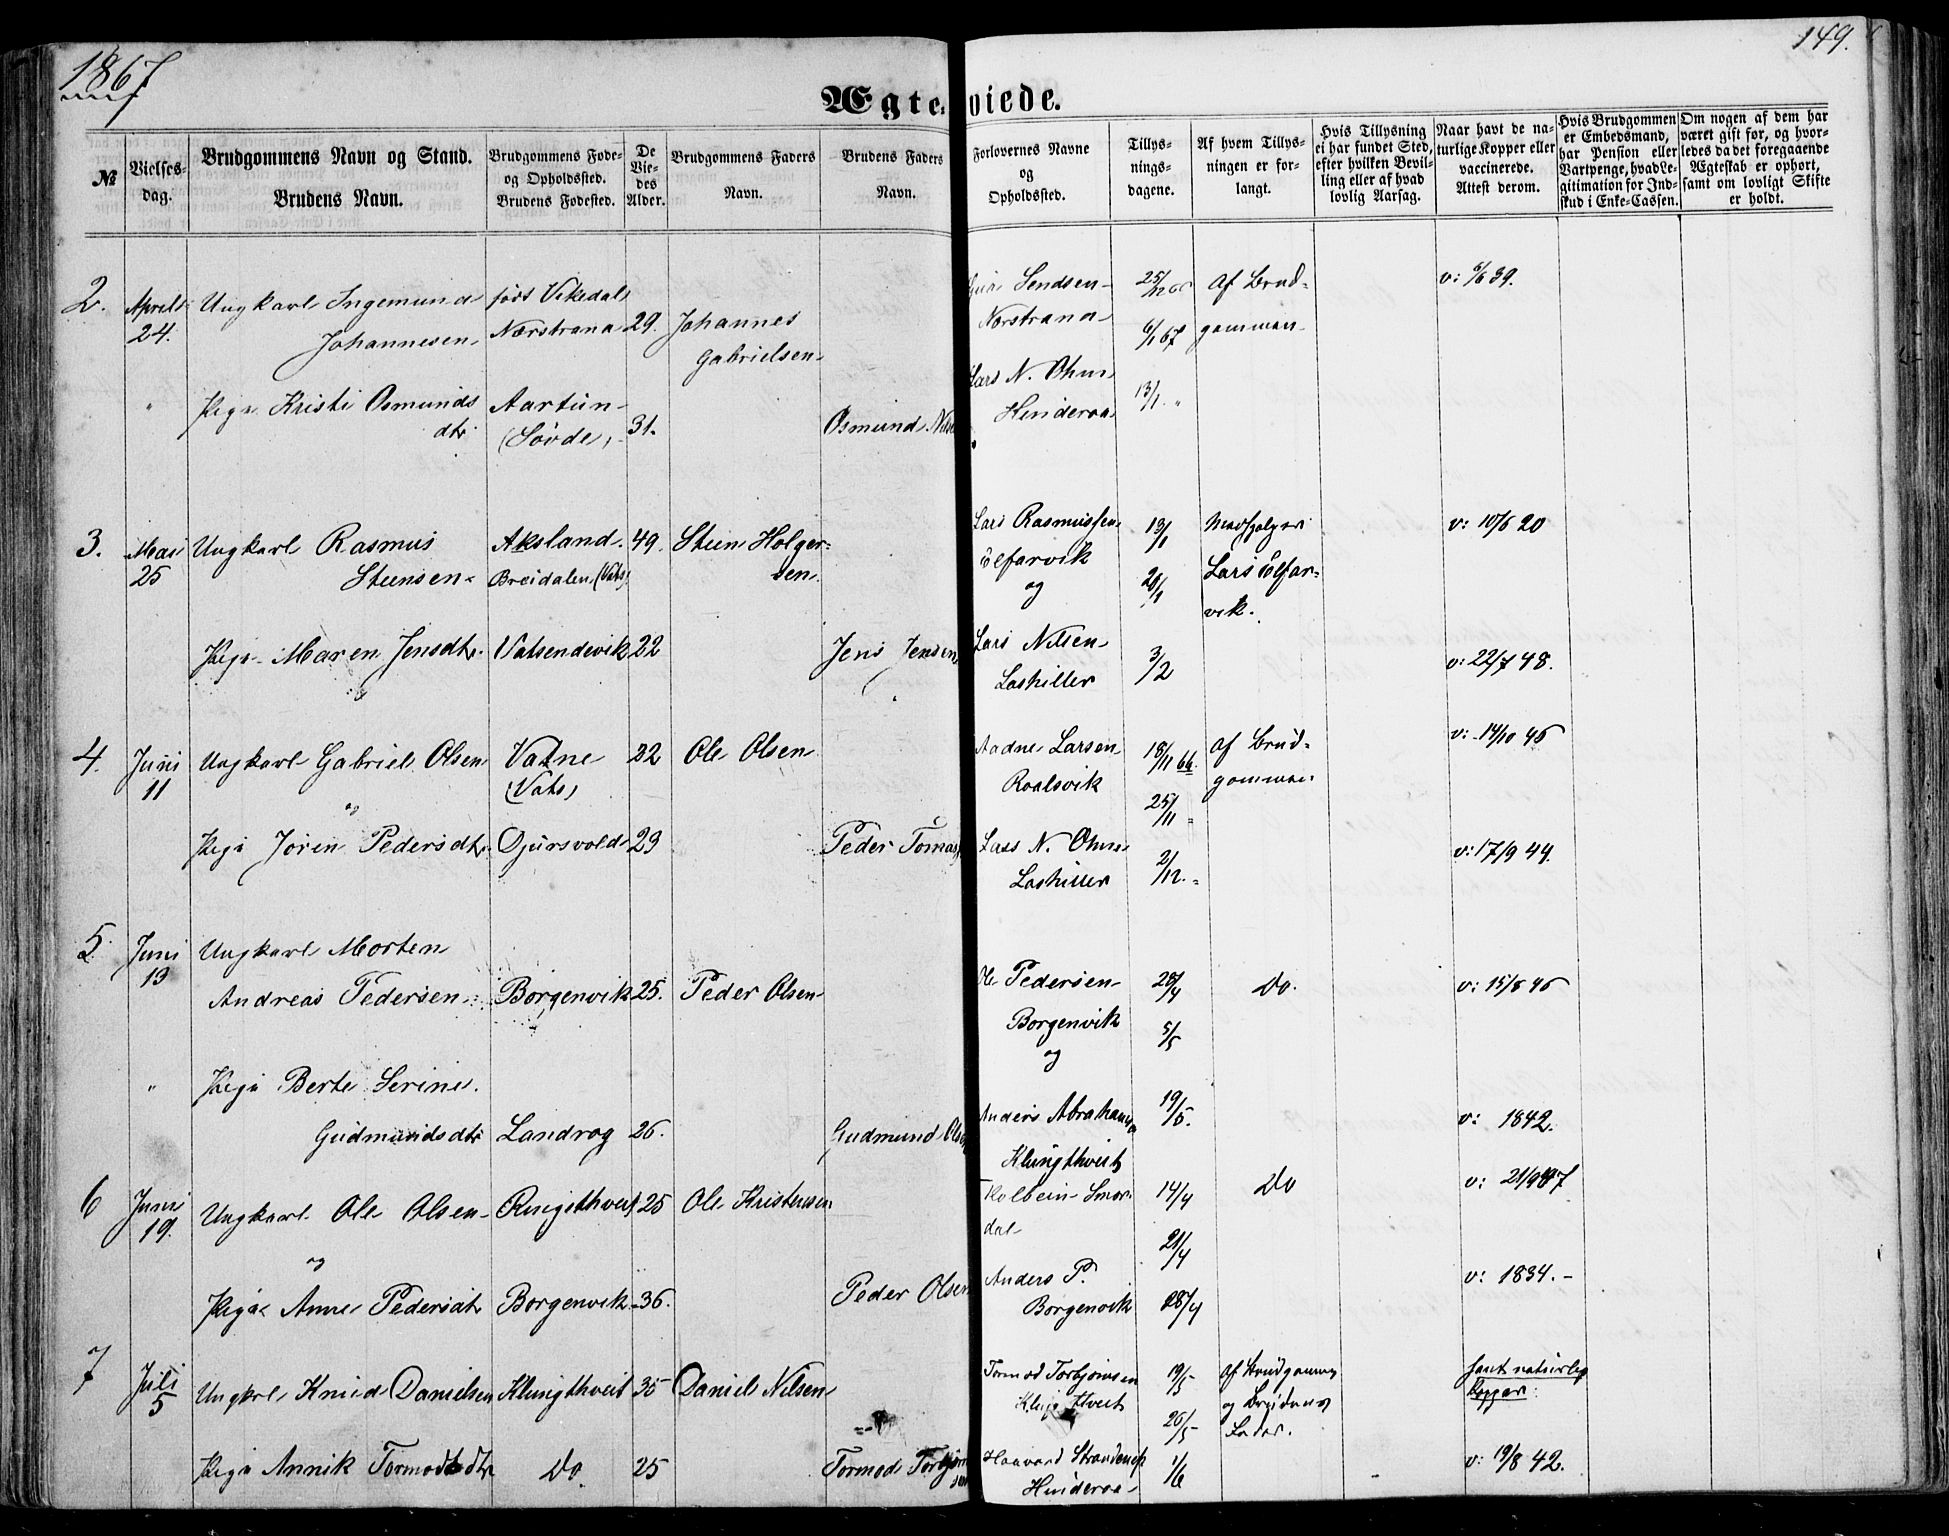 1867
149.
Ægteviede.
№
Vielses-dag.
Brudgommens Navn og Stand.
Brudens Navn.
Brudgommens Føde- og Opholdssted.
Brudens Fødested.
De Viedes Alder.
Brudgommens Faders Navn.
Brudens Faders Navn.
Forlovernes Navne og Opholdssted.
Tillysningsdagene.
Af hvem Tillysningen er forlangt.
Hvis Tillysning ei har fundet Sted, efter hvilken Bevilling eller af hvad lovlig Aarsag.
Naar havt de naturlige Kopper eller vaccinerede. Attest derom.
Hvis Brudgommen er Embedsmand, har Pension eller Vartpenge, hvad Legitimation for Indskud i Enke-Cassen.
Om nogen af dem har været gift før, og hvorledes da det foregaaende Ægteskab er ophørt, samt om lovligt Skifte er holdt.
2. Aprili 24. Ungkarl Ingemund Johannesen født Vikedal Nærstrand 29. Johannes Gabrielsen
Sendsen Nærstrand 25/12 66 6/1 67 Af Brudgommen v: 6/6 39.
" Pige Kristi Osmundsdtr Aartun (Søvde) 31. Osmund
Lars N. Ohm Hinderaa 13/1 "
3. Mai 25 Ungkarl Rasmus Steensen Aksland. Breidalen (Vats) 49. Steen Holgersen
Lars Rasmussen Ølfarvik og 13/1 20/1 Lars Ølfarvik. v: 10/6 20
Pige Maren Jensdtr. Vatsendevik 22 Jens Jensen
Lars Nilsen Loshiller 3/2 v: 22/7 48.
4. Juni 11 Ungkarl Gabriel Olsen Vatne (Vats) 22 Ole Olsen
Aadne Larsen Roalsvik 18/11 66. 25/11 Af Brudgommen v: 14/10 46
og
Pige Joren Pedersdtr. Djursvold 23 Peder Tomas
Lars N. Ohm Loshiller 2/12. v: 17/9 44.
5. Juni 13 Ungkarl Morten Andreas Pedersen Borgenvik 25. Peder Olsen
Ole Pedersen Borgenvik og 28/4 5/5 Do. v: 15/8 46
" Pige Berte Serine Gudmundsdtr Landrog 26. Gudmund Olsen
Anders Abrahamsen Klungthveit 19/5. v: 1842.
6 Juni 19. Ungkarl Ole Olsen Ringsthveit 25 Ole Kristensen
Kolbein Smordal 14/4 21/4 Do v: 21/9 47
og
Pige Anne Pedersdtr Borgenvik 36. Peder Olsen
Anders P. Borgenvik 28/4 v: 1834.
7 Juli 5 Ungkrl Knud Danielsen Klungthveit 35 Daniel Nilsen
Tormod Torbjornsen Klungthveit 19/5 26/5 Af Brudgommen og Brudens Fader. havt naturlig Kopper:
Pige Annik Tormodsdtr Do. 25 Tormod Torbjørnsen
Haavard Hinderaa 1/6 v: 19/8 42.